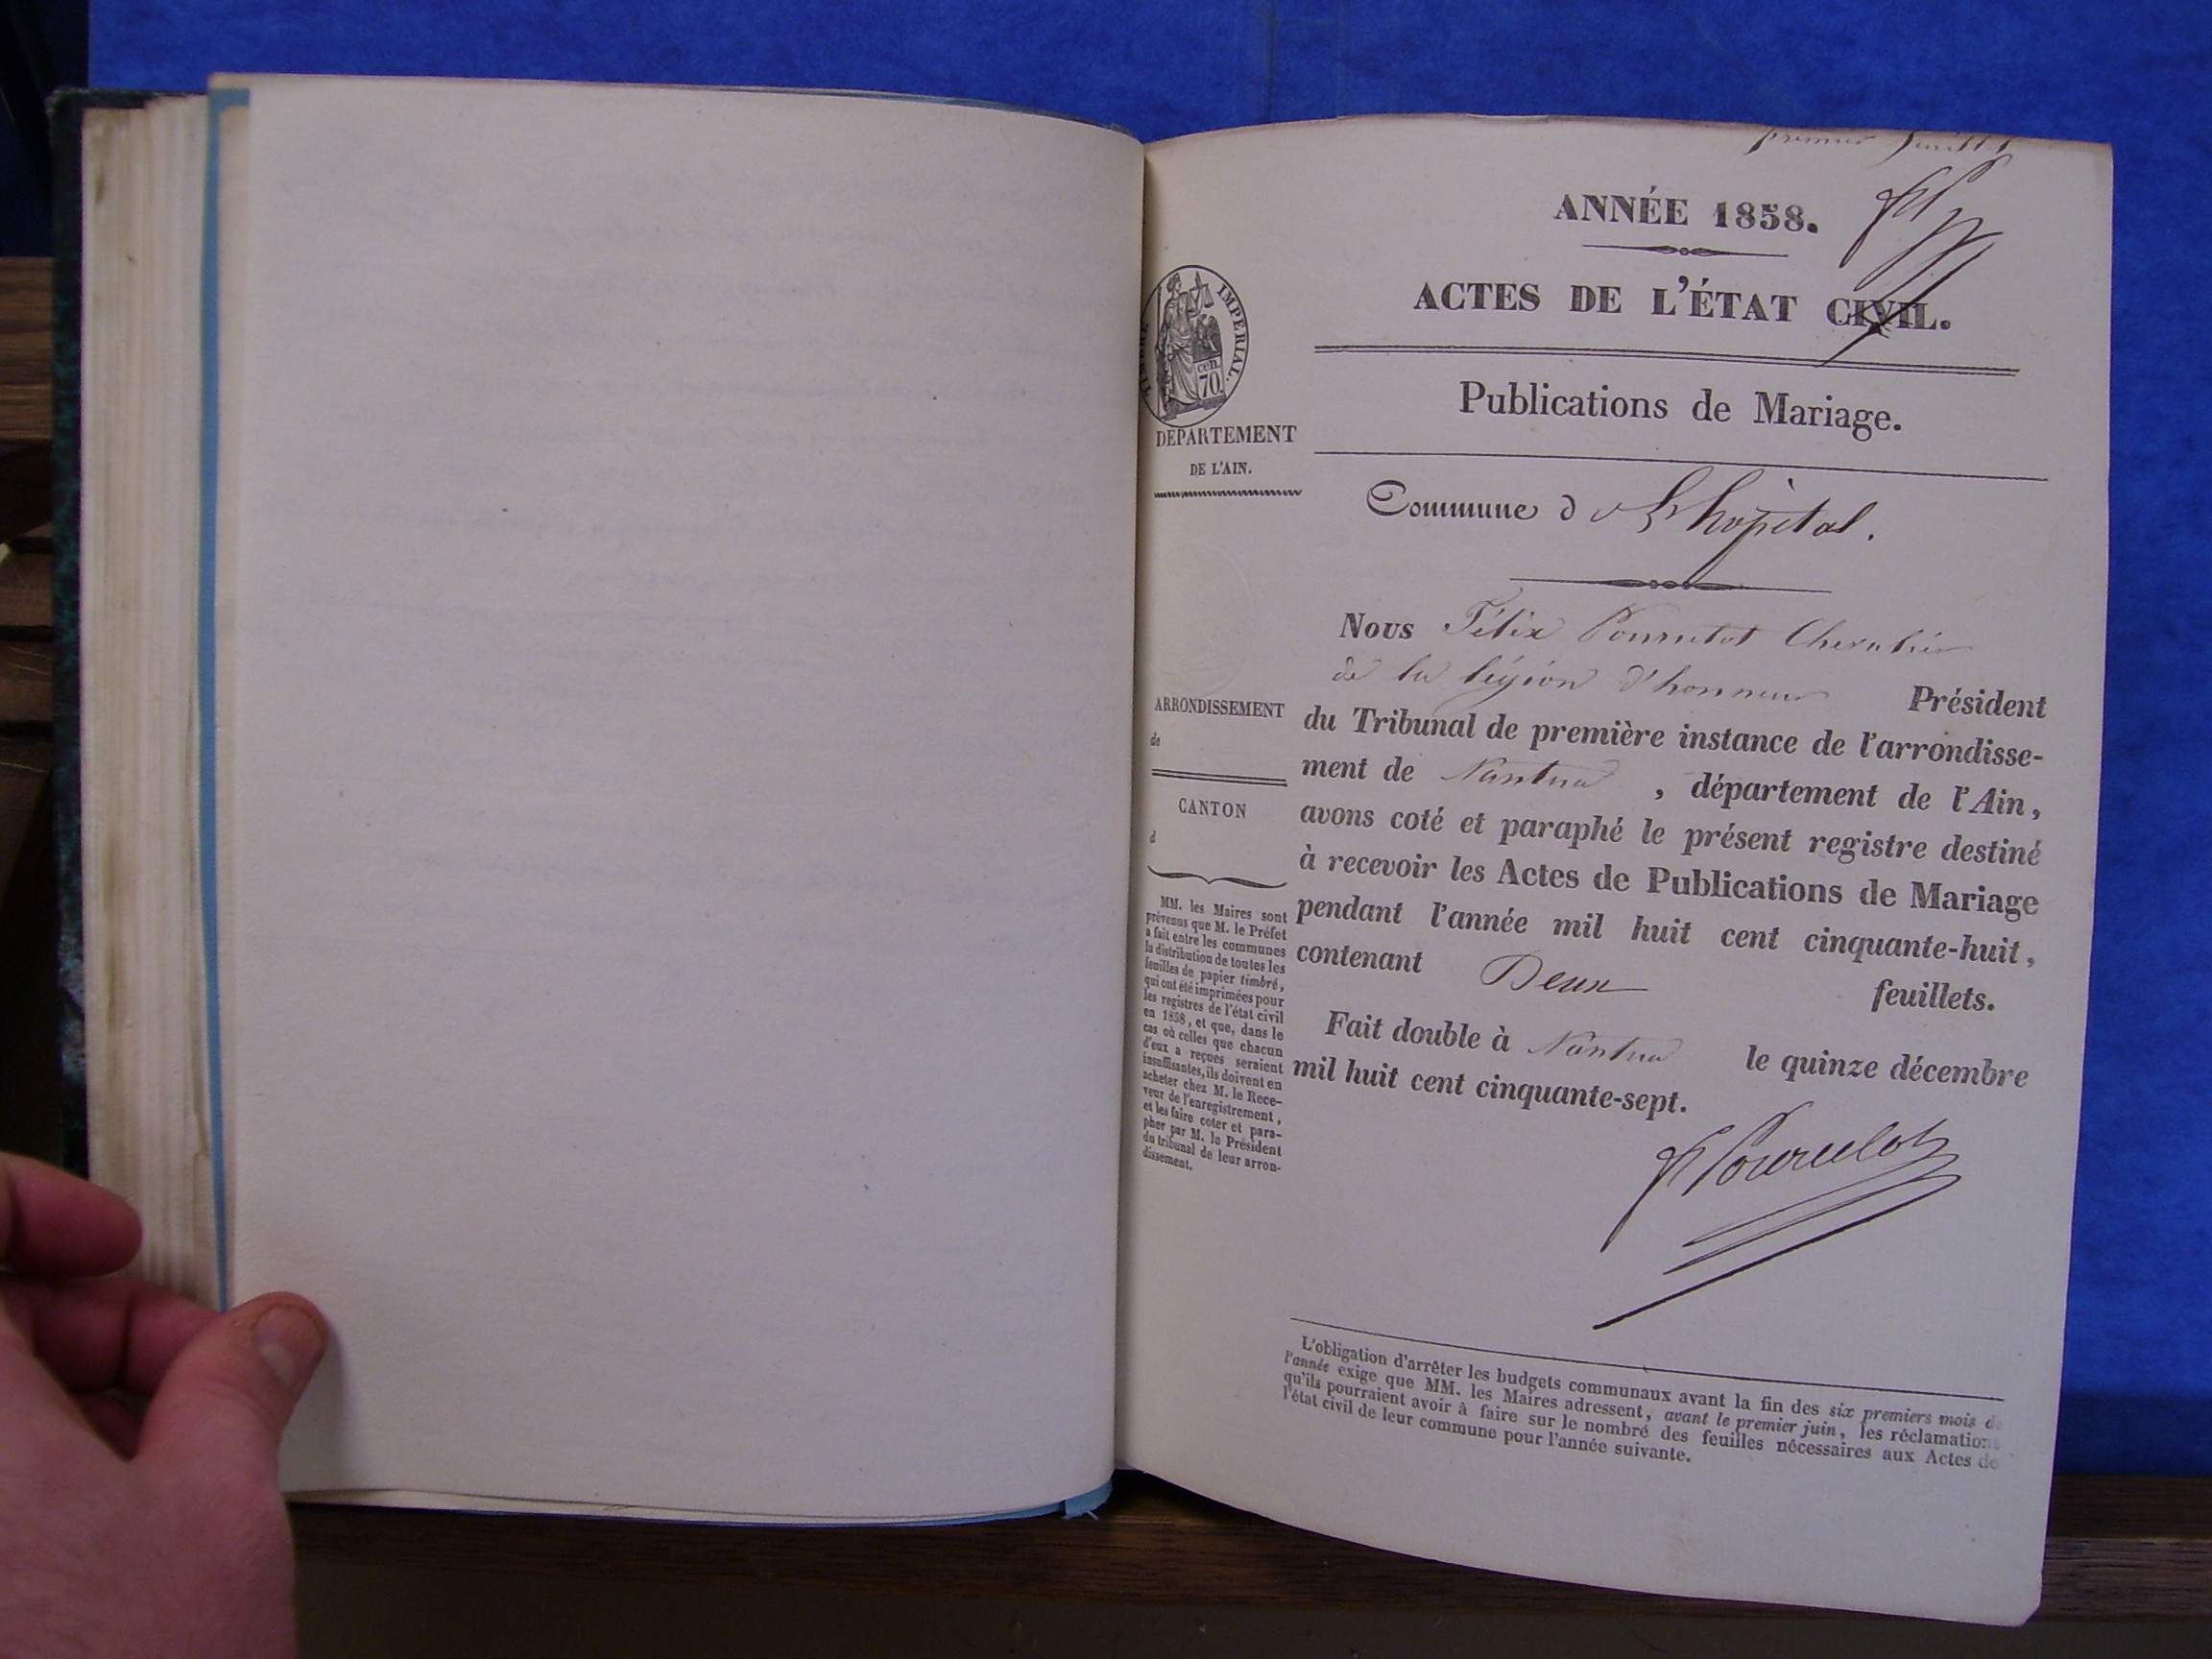 premier feuillet
ANNÉE 1858.
ACTES DE L'ÉTAT CIVIL.
Publications de Mariage.
TIMBRE IMPERIAL.
70 cen.
DÉPARTEMENT
DE L'AIN.
Commune de Lhôpital.
Nous Félix Pourulot Chevalier
de la légion d'honneur Président
du Tribunal de première instance de l'arrondisse-
ment de Nantua, département de l'Ain,
avons coté et paraphé le présent registre destiné
à recevoir les Actes de Publications de Mariage
pendant l'année mil huit cent cinquante-huit,
contenant Deux feuillets.
Fait double à Nantua le quinze décembre
mil huit cent cinquante-sept.
F Pourulot
ARRONDISSEMENT
de
CANTON
d
MM. les Maires sont
prévenus que M. le Préfet
a fait entre les communes
la distribution de toutes les
feuilles de papier timbré,
qui ont été imprimées pour
les registres de l'état civil
en 1858, et que, dans le
cas où celles que chacun
d'eux a reçues seraient
insuffisantes, ils doivent en
acheter chez M. le Rece-
veur de l'enregistrement,
et les faire coter et para-
pher par M. le Président
du tribunal de leur arron-
dissement.
L'obligation d'arrêter les budgets communaux avant la fin des six premiers mois de
l'année exige que MM. les Maires adressent, avant le premier juin, les réclamations
qu'ils pourraient avoir à faire sur le nombre des feuilles nécessaires aux Actes de
l'état civil de leur commune pour l'année suivante.